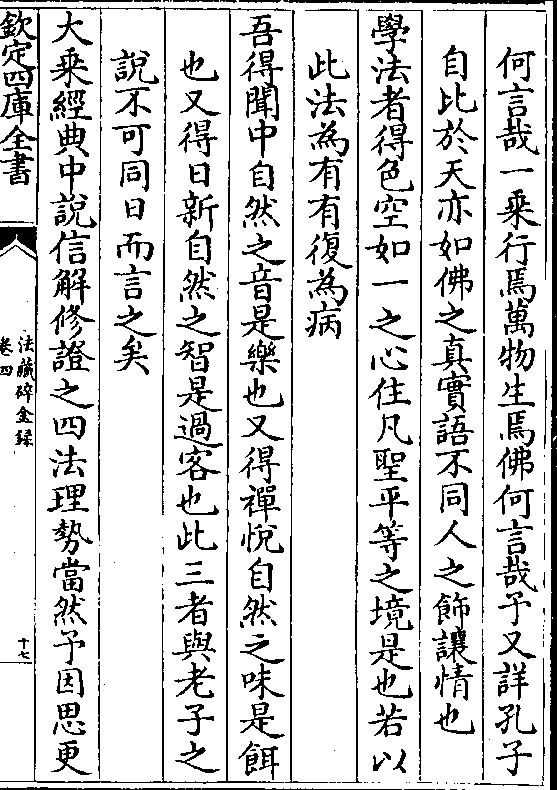 何言哉一乘行焉萬物生焉佛何言哉予又詳孔子
自比於天亦如佛之真實語不同人之飾讓情也
學法者得色空如一之心住凡聖平等之境是也若以
此法為有有復為病
吾得聞中自然之音是樂也又得禪悅自然之味是餌
也又得日新自然之智是過客也此三者與老子之
說不可同日而言之矣
大乘經典中說信解修證之四法理勢當然予因思更
欽定四庫全書
法藏碎金錄
卷四
十七